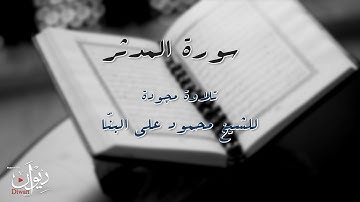 سورة المدثر
تلاوة مجودة
للشيخ محمود على البنّا
ديوان
Diwan